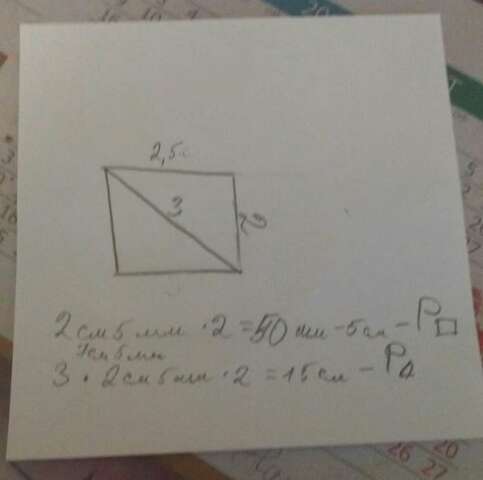 2,5с
3
2
2 см 5 мм · 2 = 50 мм - 5 см - P□
7 см 5 мм
3 · 2 см 5 мм · 2 = 15 см - P△
20
26 27